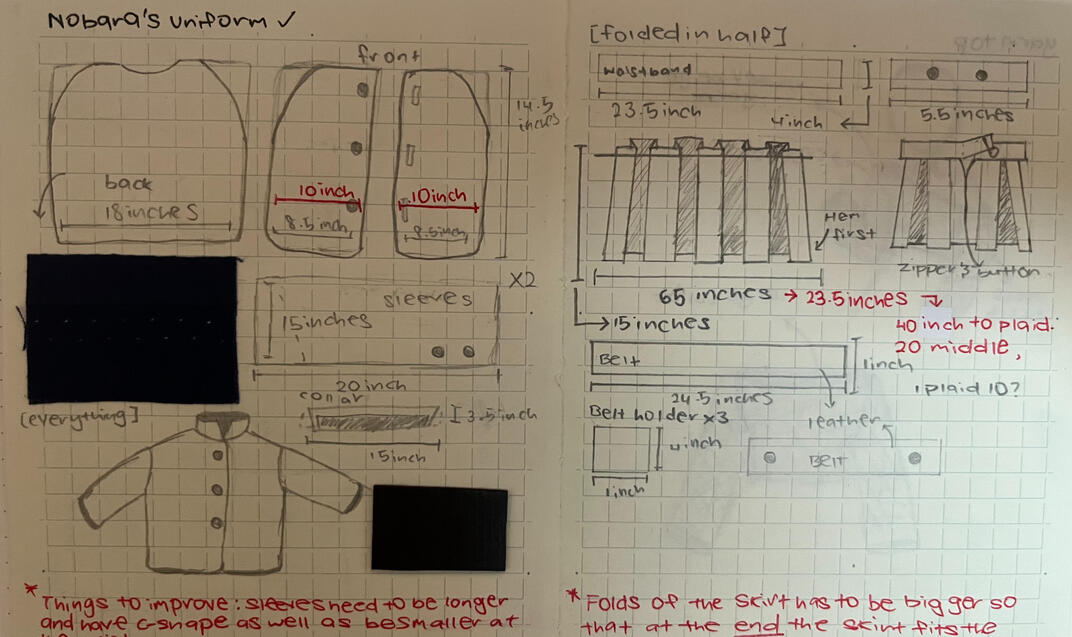 Nobara's uniform ✓
front
14.5 inches
back
18 inches
10 inch
8.5 inch
10 inch
8.5 inch
x2
sleeves
15 inches
20 inch
collar
3.5 inch
15 inch
[everything]
* Things to improve: sleeves need to be longer
and have c-shape as well as be smaller at
[folded in half]
waistband
23.5 inch
4 inch
5.5 inches
Hem first
zipper & button
65 inches → 23.5 inches
→ 15 inches
40 inch to plaid.
20 middle,
1 plaid 10?
Belt
1 inch
24.5 inches
Belt holder x3
4 inch
1 inch
leather
Belt
* Folds of the skirt has to be bigger so
that at the end the skirt fits the